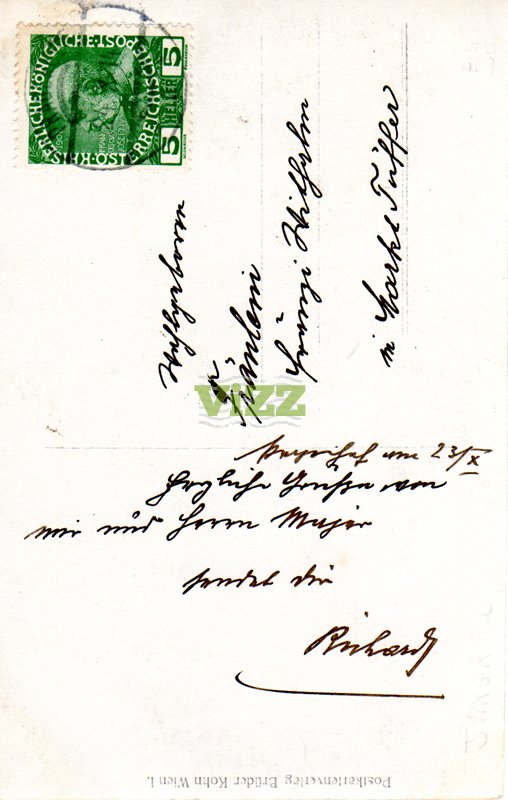 KAISERLICHE KÖNIGLICHE ÖSTERREICHISCHE POST
5 HELLER 5
Wohlgeboren
Fräulein
Franzi Wilhelm
in Markt Tüffer
VIZZ
am 23/X
Herzliche Grüße von
mir und Herrn Majer
sendet dir
Richard
Postkartenverlag Brüder Kohn Wien I.